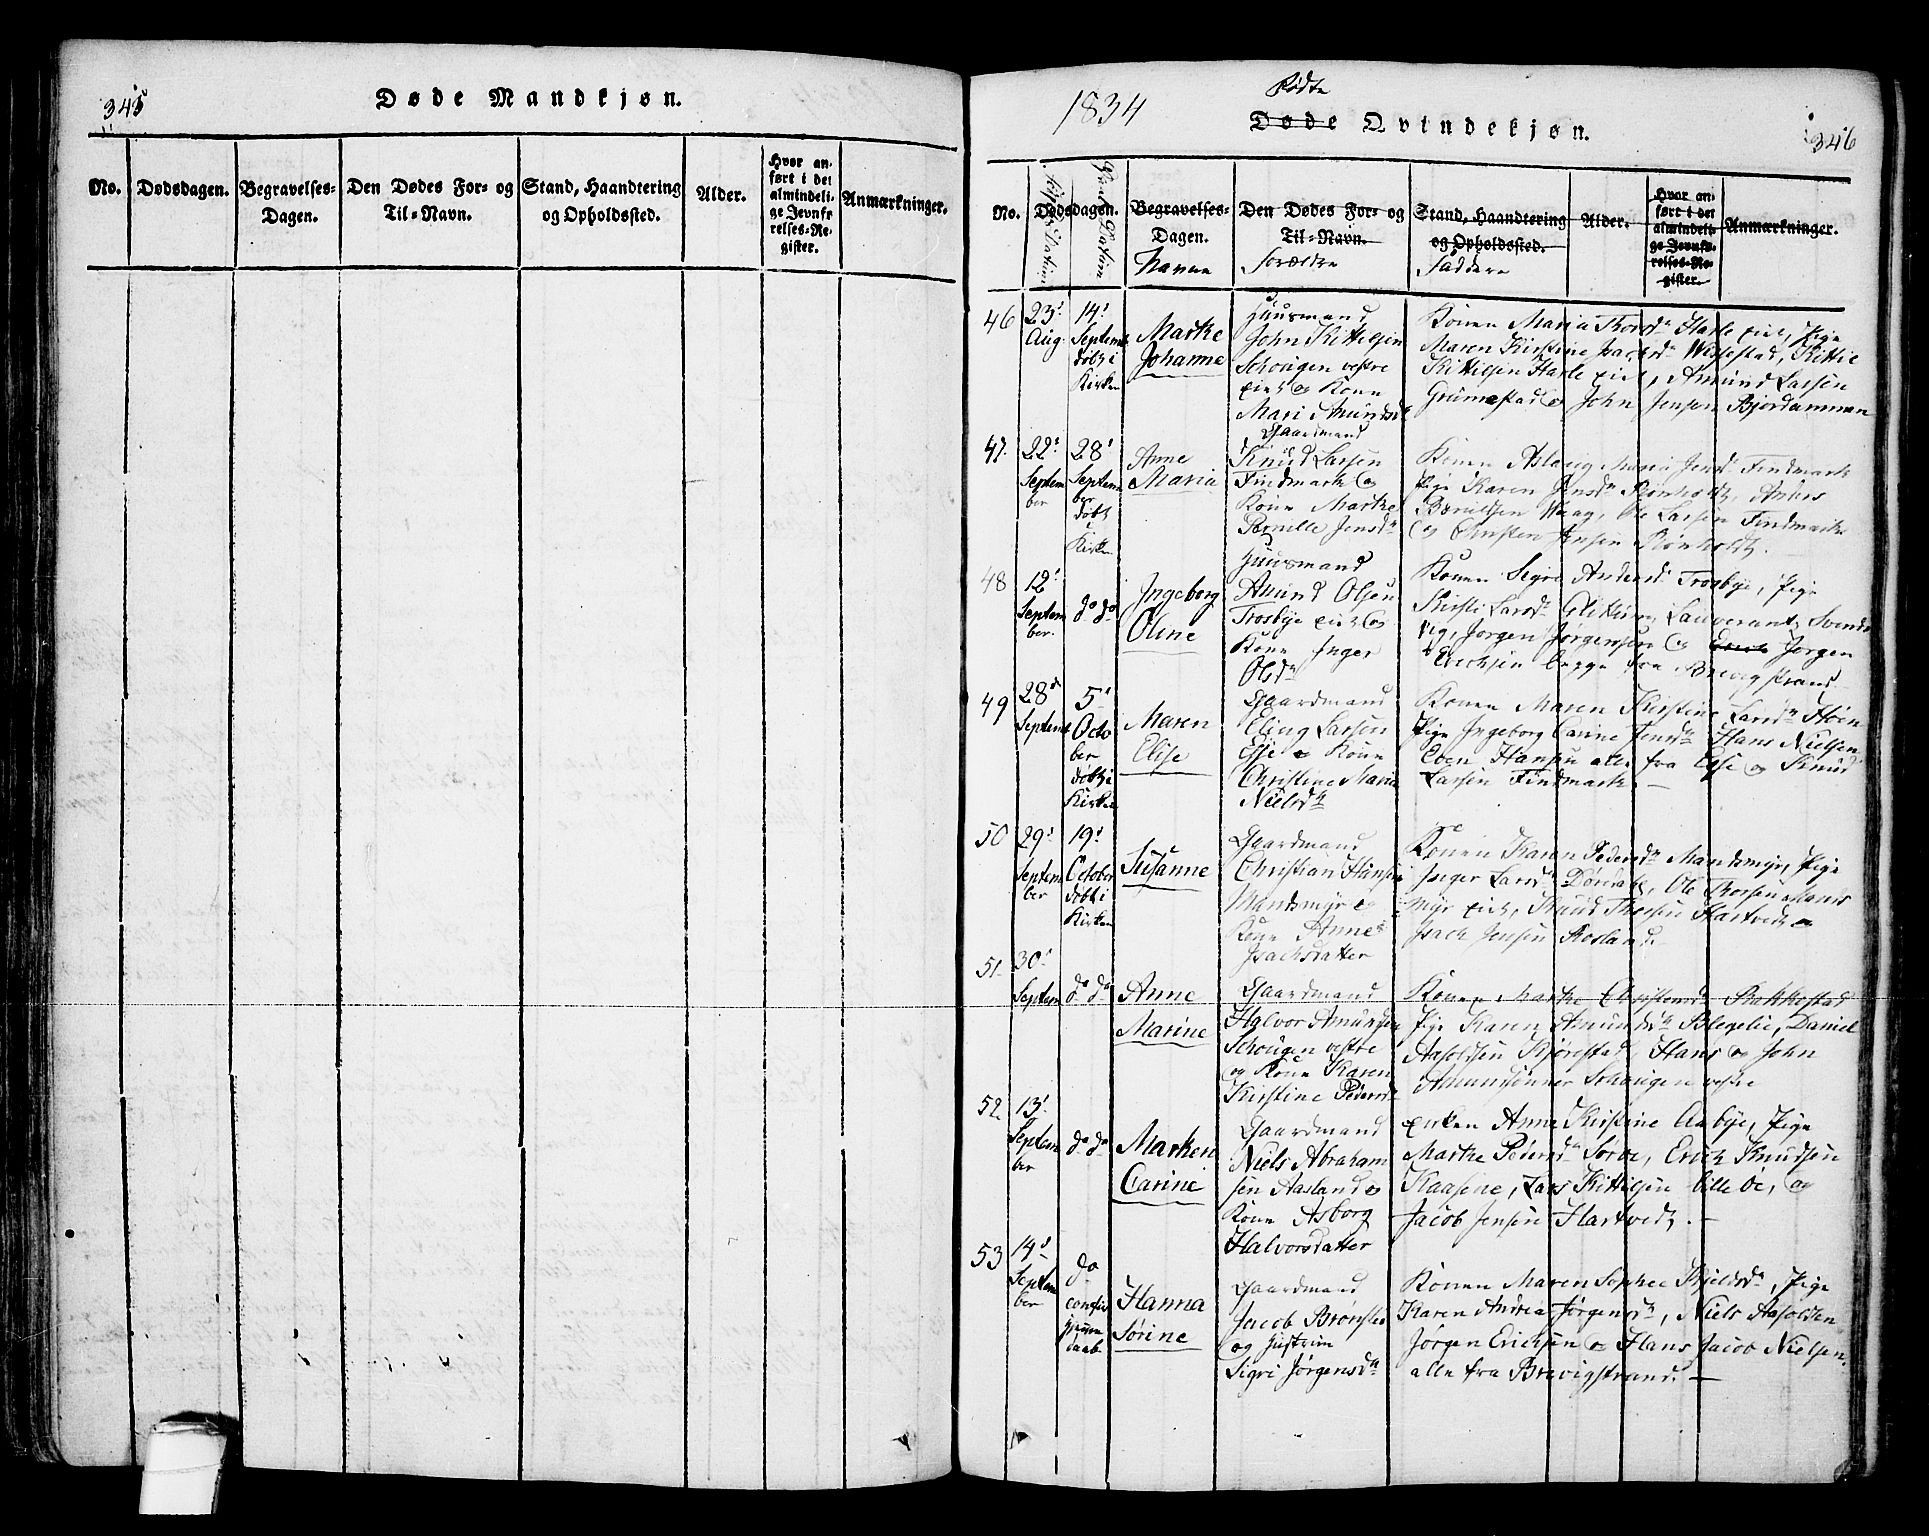 345
Døde Mandkjøn.
No.
Dødsdagen.
Begravelses-
Dagen.
Den Dødes For- og
Til-Navn.
Stand, Haandtering
og Opholdssted.
Alder.
Hvor an-
ført i det
almindeli-
ge Jevnfø-
relses-Re-
gister.
Anmærkninger.
1834
Fødte
Døde Qvindekjøn.
346
No.
Dødsdagen.
Begravelses-
Dagen.
Navne
Den Dødes For- og
Til-Navn.
Forældre
Stand, Haandtering
og Opholdssted.
Faddere
Alder.
Hvor an-
ført i det
almindeli-
ge Jevnfø-
relses-Re-
gister.
Anmærkninger.
46
23'
Aug.
14'
Septemb
døbt i
Kirken
Marthe
Johanne
Huusmand
John Kittilsen
Schougen vestre
eiet og Kone
Mari Amundsd
Konen Maria Thorsd Harle eiet, Pige
Maren Kirstine Isachsd Wissestad, Kittil
Kittilsen Harle eiet, Amund Larsen
Grumestad og John Jensen Bjordammen
47.
22'
Septem
ber
28'
Septem
ber
døbt
i
Kirken
Anne
Maria
Gaardmand
Knud Larsen
Findmark og
Kone Marthe
Pernille Jensd
Konen Aslaug Maria Jensd Findmark
Pige Karen Jensd Rønholdt, Anders
Berulfsen Waag, Ole Larsen Findmark
og Christen Jensen Rønholdt.
48
12'
Septem
ber.
do do
Ingeborg
Oline
Huusmand
Amund Olsen
Trosbye eiet og
Kone Inger
Olsd
Konen Sigri Andersd Trosbye, Pige
Kirsti Larsd Glittum, Lauverant Svend
vig, Jorgen Jørgensen og Jorgen
Ericksen begge fra Brevigstrand
49
28
Septemb
5'
Octo
ber
døbt i
Kirken
Maren
Elise
Gaardmand
Eling Larsen
Eese og Kone
Christine Maria
Nielsd
Konen Maren Kirstine Larsd Høen
Pige Ingeborg Carine Jensd Hans Nielsen
Even Hansen alle fra Eese og Knud
Larsen Findmark. —
50
29'
Septem
ber
19'
October
døbt i
Kirken
Susanne
Gaardmand
Christian Hansen
Mandsmyr og
Kone Anne
Isachsdatter
Konen Karen Pedersd Mandsmyr, Pige
Inger Larsd Døredalt, Ole Thorsen Mands
Myr eiet, Knud Thorsen Hartvedt og
Isach Jensen Rosland. —
51.
30'
Septem
do do
Anne
Marine
Gaardmand
Halvor Amundsen
Schougen vestre
og Kone Karen
Kirstine Pedersd
Konen Marthe Christensd Stokkestad
Pige Karen Amundsd Blegelie, Daniel
Aasoldsen Kjørestad, Hans og John
Amundsønner Schougen vestre
52
13'
Septem
ber
do do
Marken
Carine
Gaardmand
Niels Abraham
sen Aasland og
Kone Asborg
Halvorsdatter
Enken Anne Kirstine Aabye, Pige
Marthe Pedersd Sorve, Erick Knudsen
Kaasene, Lars Kittilsen Lille Øe, og
Jacob Jensen Hartvedt. —
53
14'
Septem
ber
do
confir
hjemme
daab
Hanna
Sørine
Gaardmand
Jacob Brønsted
og Hustrue
Sigri Jørgensd
Konen Maren Sophee Kjeldsd, Pige
Karen Andrea Jørgensd, Niels Aasolden
Jørgen Ericksen og Hans Jacob Nielsen
alle fra Brevigstrand. —